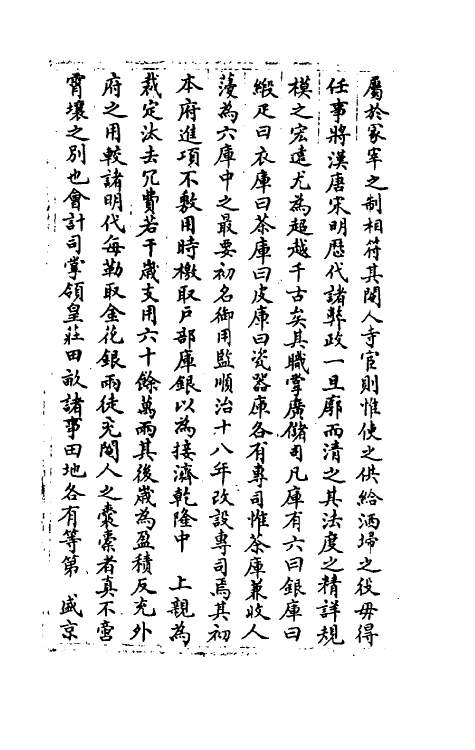 屬於冢宰之制相符其閹人寺官則惟使之供給洒埽之役毋得
任事將漢唐宋明歷代諸弊政一旦廓而清之其法度之精詳規
模之宏遠尤為超越千古矣其職掌廣儲司凡庫有六曰銀庫曰
緞疋曰衣庫曰茶庫曰皮庫曰瓷器庫各有專司惟茶庫兼收人
葠為六庫中之最要初名御用監順治十八年改設專司焉其初
本府進項不敷用時檄取戶部庫銀以為接濟乾隆中 上親為
裁定汰去冗費若干歲支用六十餘萬兩其後歲為盈積反充外
府之用較諸明代每勒取金花銀兩徒充閹人之囊橐者真不啻
霄壤之別也會計司掌領皇莊田畝諸事田地各有等第 盛京